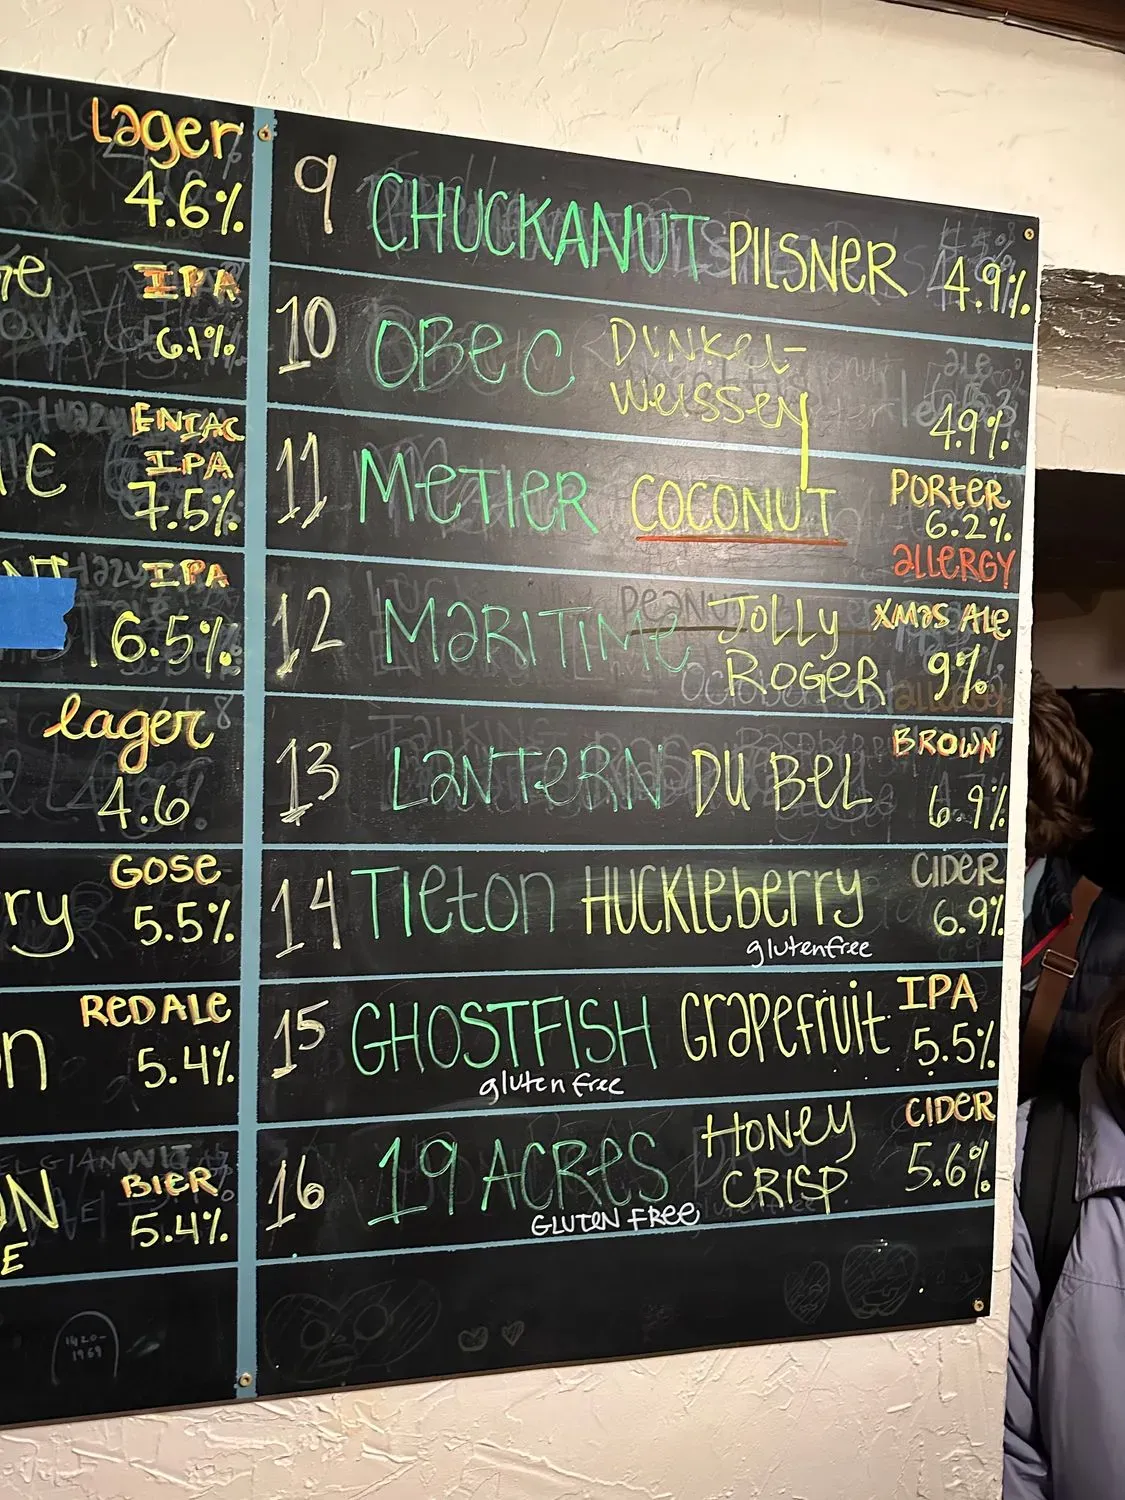 Lager
4.6%
IPA
6.1%
ENIAC
IPA
7.5%
IPA
6.5%
lager
4.6
GOSE
ry 5.5%
RED ALE
5.4%
BIER
5.4%
1420-
1969
9 CHUCKANUT PILSNER 4.9%
10 OBEC DINKEL- ale
WEISSEY 4.9%
11 METIER COCONUT PORTER
6.2%
ALLERGY
12 MARITIME JOLLY XMAS ALE
ROGER 9%
13 LANTERN DU BEL BROWN
6.9%
14 TIETON HUCKLEBERRY CIDER
6.9%
glutenfree
15 GHOSTFISH GRAPEFRUIT IPA
5.5%
gluten free
16 19 ACRES HONEY CIDER
CRISP 5.6%
GLUTEN FREE